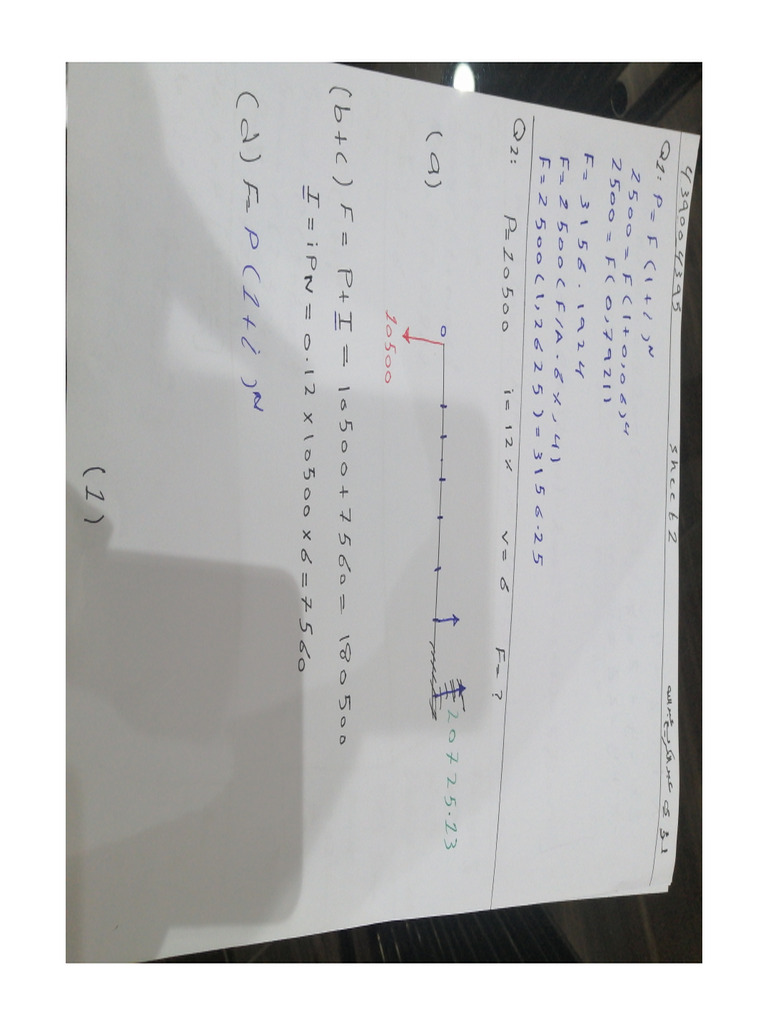 439004395 sheet 2
Q1: P = F (1+i)ᴺ
2500 = F (1+0,06)⁴
2500 = F(0,7921)
F = 3156.1924
F = 2500 (F/A.6%,4)
F = 2500 (1,2625) = 3156.25
Q2: P=10500 i=12% N=6 F=?
20725.23
(a) 0
10500
(b+c) F = P+I = 10500+7560= 180500
I = iPN = 0.12 x10500 x6 = 7560
(d) F= P(1+i)ᴺ
(1)